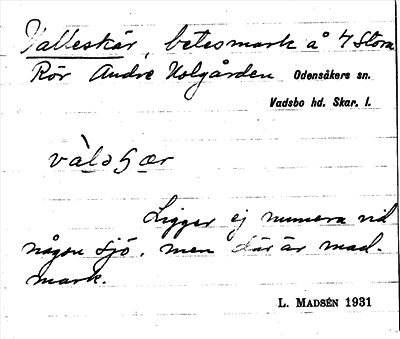 Valleskär, betesmark å 4 Stora
Rör Andre Holgården Odensåkers sn.
Vadsbo hd. Skar. l.
vàləsær
Ligger ej numera vid
någon sjö, men där är mad-
mark.
L. MADSÉN 1931